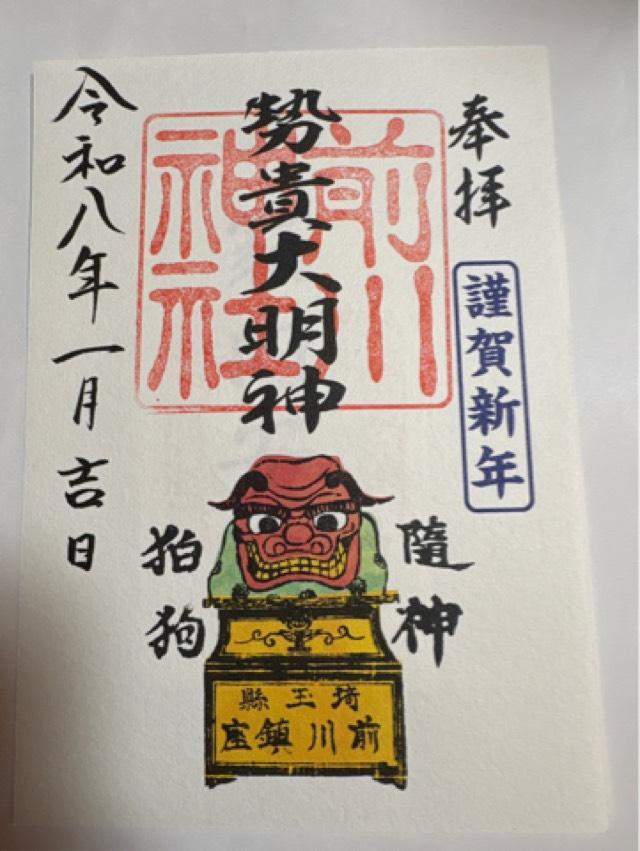 奉拝
謹賀新年
前川
神社
勢貴大明神
隨神
狛狗
埼玉縣
前川鎮座
令和八年一月吉日